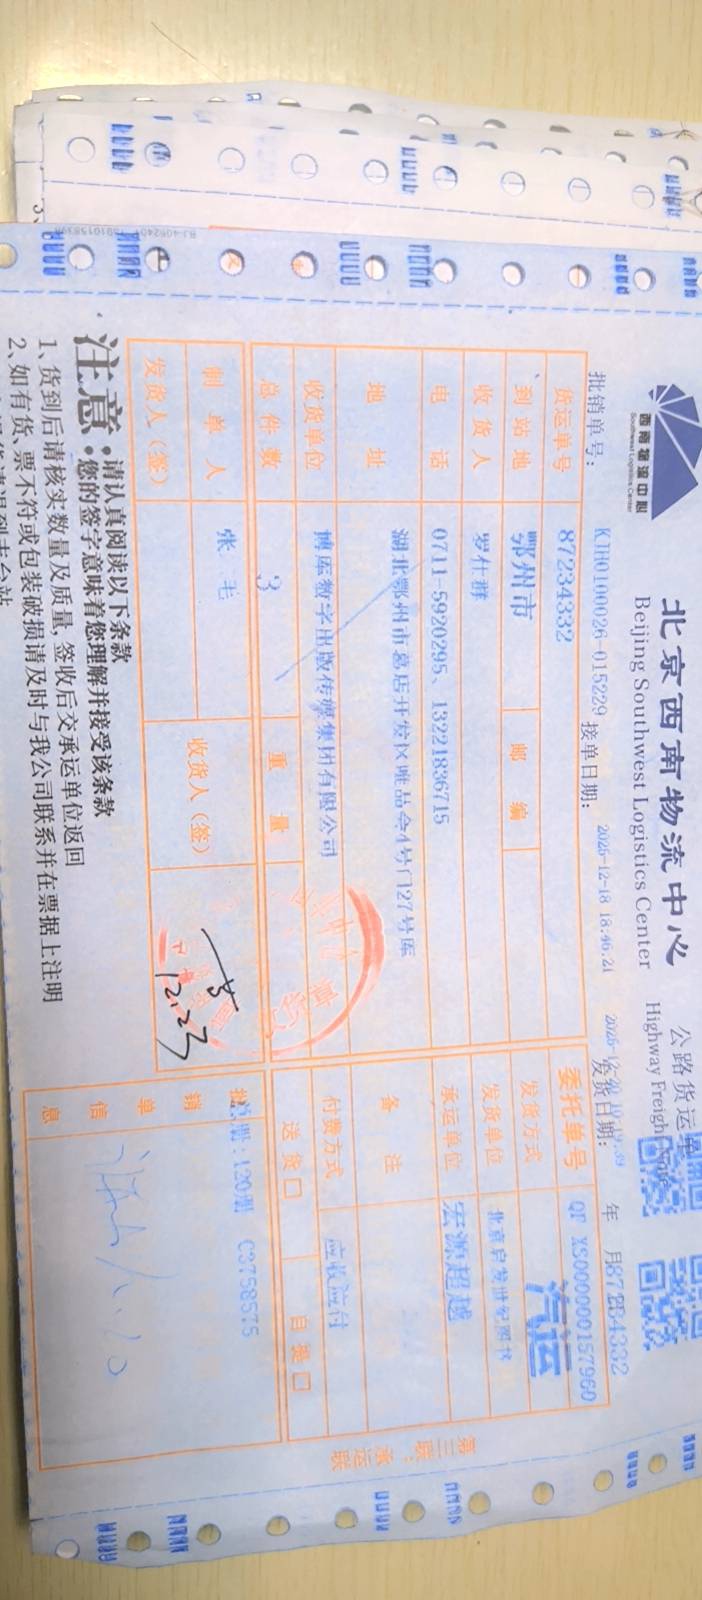 西南物流中心
Southwest Logistics Center
北京西南物流中心 公路货运单
Beijing Southwest Logistics Center Highway Freight Note
批销单号： KJH0100026-015229 接单日期： 2025-12-18 18:46:21 发货日期： 年 月 87234332
货运单号 87234332 委托单号 QF XS0000000157960
到站地 鄂州市 邮编 发货方式 汽运
收货人 罗仕群 发货单位 北京启发世纪图书
电话 0711-5920295、13221836715 承运单位 宏源超越
地址 湖北鄂州市葛店开发区唯品会4号门27号库 备注
收货单位 博库数字出版传媒集团有限公司 付费方式 应收应付
总件数 3 重量 送货口 自提口
制单人 张毛 收货人（签） 12.23
发货人（签）
批销单信息 总册:120册 C3758575
第三联：承运联
注意：请认真阅读以下条款
您的签字意味着您理解并接受该条款
1、货到后请核实数量及质量，签收后交承运单位返回
2、如有货、票不符或包装破损请及时与我公司联系并在票据上注明